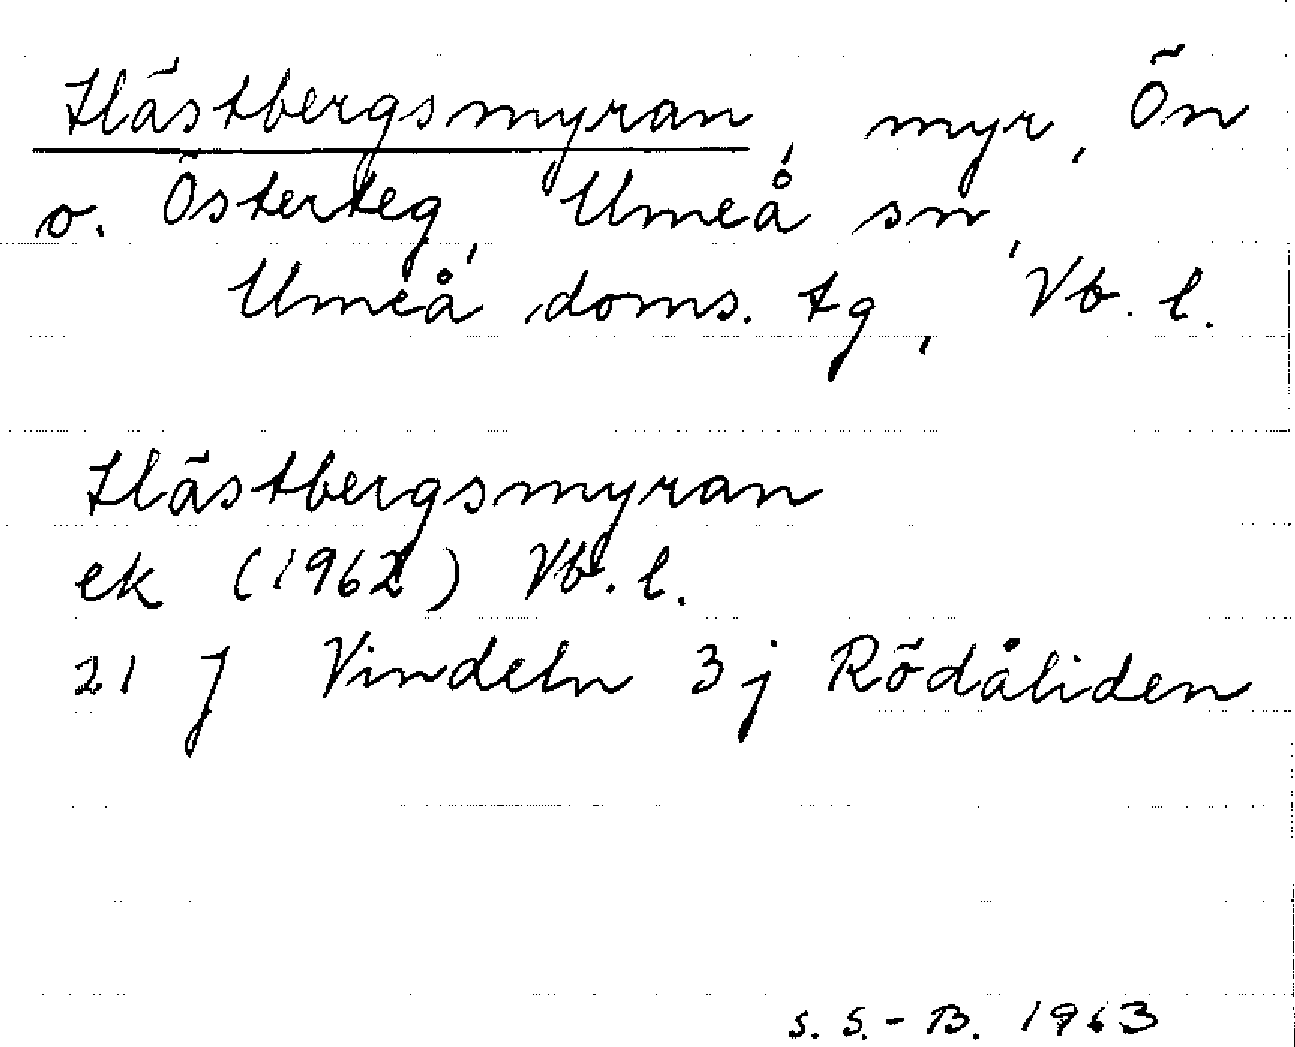 Hästbergsmyran, myr, Ön
o. Österteg, Umeå sn,
Umeå doms. tg, Vb. l.
Hästbergsmyran
ek (1962) Vb. l.
21 J Vindeln 3j Rödåliden
S. S.-B. 1963